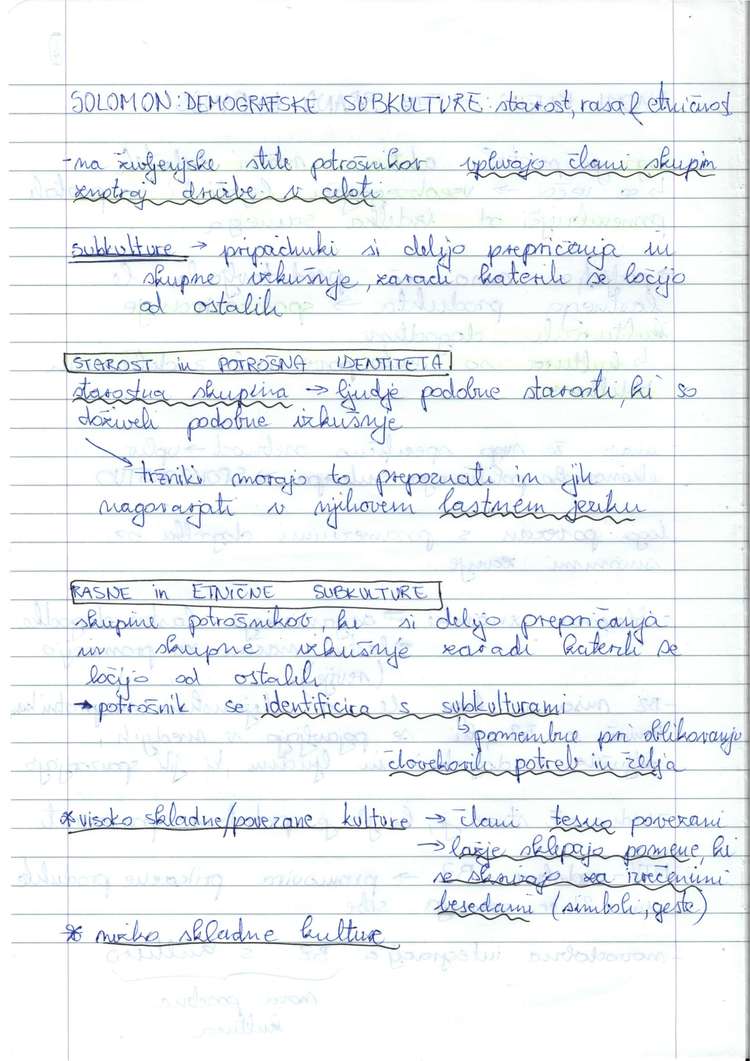 SOLOMON: DEMOGRAFSKE SUBKULTURE: starost, rasa & etničnost
- na življenjske stile potrošnikov vplivajo člani skupin
znotraj družbe v celoti
subkulture → pripadniki si delijo prepričanja in
skupne izkušnje, zaradi katerih se ločijo
od ostalih
STAROST in POTROŠNA IDENTITETA
starostna skupina → ljudje podobne starosti, ki so
doživeli podobne izkušnje
tržniki morajo to prepoznati in jih
nagovarjati v njihovem lastnem jeziku
RASNE in ETNIČNE SUBKULTURE
skupine potrošnikov, ki si delijo prepričanja
in skupne izkušnje zaradi katerih se
ločijo od ostalih
→ potrošnik se identificira s subkulturami
↳ pomembne pri oblikovanju
človekovih potreb in želja
* visoko skladne/povezane kulture → člani tesno povezani
→ lažje sklepajo pomene, ki
se skrivajo za izrečenimi
besedami (simboli, geste)
* nizko skladne kulture